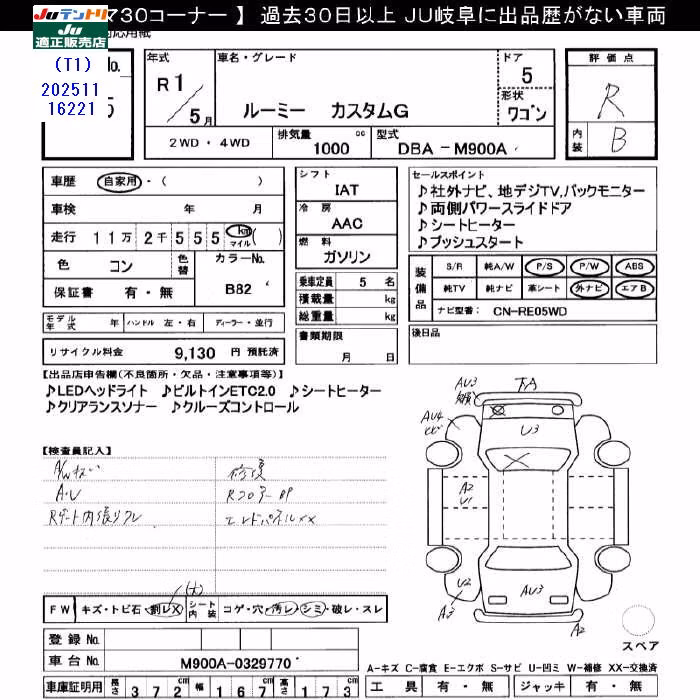 730コーナー 】 過去30日以上 JU岐阜に出品歴がない車両
Juテントリ
Ju
適正販売店
応用紙
(T1)
202511
16221
No.
5
年式
R1/5月
車名・グレード
ルーミー カスタムG
ドア
5
形状
ワゴン
評価点
R
内装
B
2WD・4WD
排気量
1000 cc
型式
DBA－M900A
車歴 自家用・( )
車検 年 月
走行 11万2千555 km マイル ( )
色 コン
色替
カラーNo.
B82
保証書 有・無
モデル年式 年
ハンドル 左・右
ディーラー・並行
リサイクル料金 9,130 円 預託済
シフト
IAT
冷房
AAC
燃料
ガソリン
乗車定員 5 名
積載量 kg
総重量 kg
書類期限
月 日
セールスポイント
♪社外ナビ、地デジTV,バックモニター
♪両側パワースライドドア
♪シートヒーター
♪プッシュスタート
装備品
S/R 純A/W P/S P/W ABS
純TV 純ナビ 革シート 外ナビ エアB
ナビ型番: CN-RE05WD
後日品
【出品店申告欄(不良箇所・欠品・注意事項等)】
♪LEDヘッドライト ♪ビルトインETC2.0 ♪シートヒーター
♪クリアランスソナー ♪クルーズコントロール
【検査員記入】
A・U
修復
Rフロアー
エンドパネルXX
AU3
AU4
ヒビ
U3
A2
U1
U2
A3
AU3
A2
スペア
FW キズ・トビ石・割レX
シート内装 コゲ・穴・汚レ・シミ・破レ・スレ
登録 No.
車台 No. M900A-0329770
車庫証明用 長さ 372cm 幅 167cm 高さ 173
A-キズ C-腐食 E-エクボ S-サビ U-凹ミ W-補修 XX-交換済
工具 有・無 ジャッキ 有・無